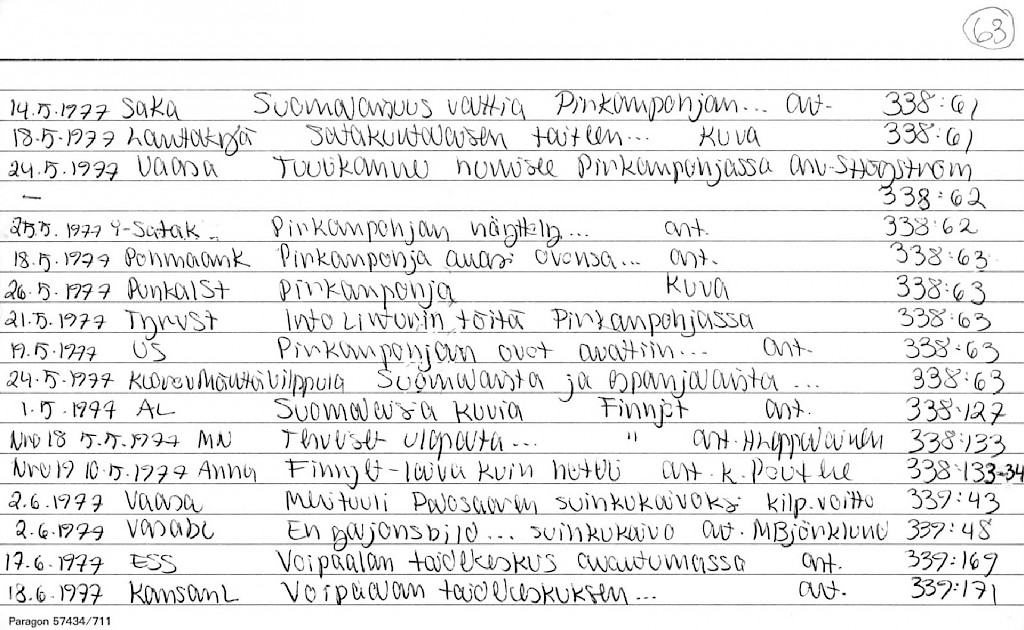 63
14.5.1977 SaKa Suomalaisuus valttia Pirkanpohjan... art. 338:61
18.5.1977 Lauttakylä Satakuntalaisen taiteen... Kuva 338:61
24.5.1977 Vaasa Tuulikannu humisee Pirkanpohjassa arv-SHögström
— 338:62
25.5.1977 Y-Satak. Pirkanpohjan näyttely... art. 338:62
18.5.1977 Pohmaank Pirkanpohja avasi ovensa... art. 338:63
26.5.1977 PunkalSt Pirkanpohja Kuva 338:63
21.5.1977 TyrvSt Into Linturin töitä Pirkanpohjassa 338:63
19.5.1977 US Pirkanpohjan ovet avattiin... art. 338:63
24.5.1977 KuorevMänttäVilppula Suomalaista ja espanjalaista ... 338:63
1.5.1977 AL Suomalaisia kuvia Finnjet art. 338:127
Nro 18 5.5.1977 MN Terveiset ulapalta... " art. HLappalainen 338:133
Nro 19 10.5.1977 Anna Finnjet-laiva kuin hotelli art. K. 338:133-34
2.6.1977 Vaasa Merituuli Palosaaren suihkukaivoksi kilp.voitto 339:43
2.6.1977 Vasabl En gajonsbild... suihkukaivo art. MBjörklund 339:48
17.6.1977 ESS Voipaalan taidekeskus avautumassa art. 339:169
18.6.1977 KansanL Voipaalan taidekeskuksen... art. 339:171
Paragon 57434/711